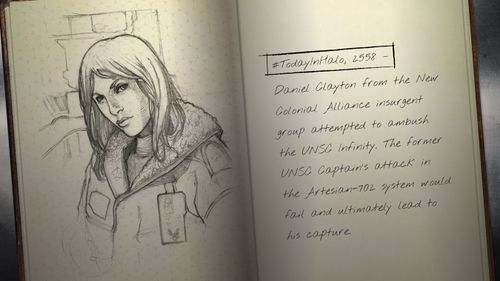 #TodayInHalo, 2558 -
Daniel Clayton from the New
Colonial Alliance insurgent
group attempted to ambush
the UNSC Infinity. The former
UNSC Captain's attack in
the Artesian-702 system would
fail and ultimately lead to
his capture